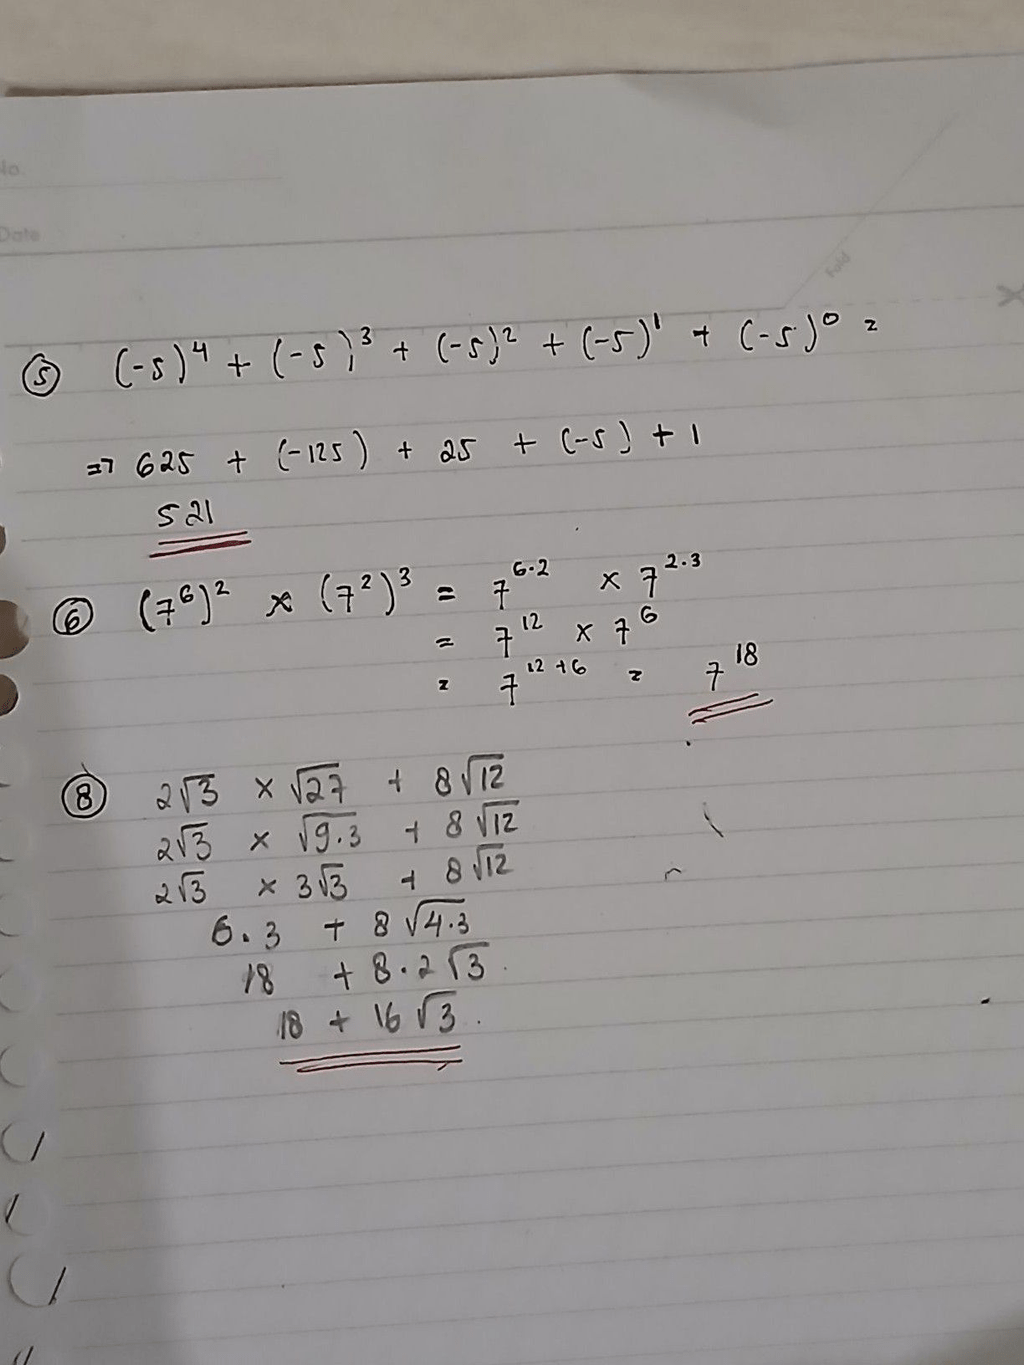 No.
Date
Fold
⑤ (-5)⁴ + (-5)³ + (-5)² + (-5)¹ + (-5)⁰ =
⇒ 625 + (-125) + 25 + (-5) + 1
521
⑥ (7⁶)² × (7²)³ = 7⁶·² × 7²·³
= 7¹² × 7⁶
= 7¹²⁺⁶ = 7¹⁸
⑧ 2√3 × √27 + 8√12
2√3 × √9.3 + 8√12
2√3 × 3√3 + 8√12
6.3 + 8√4.3
18 + 8.2√3.
18 + 16√3.